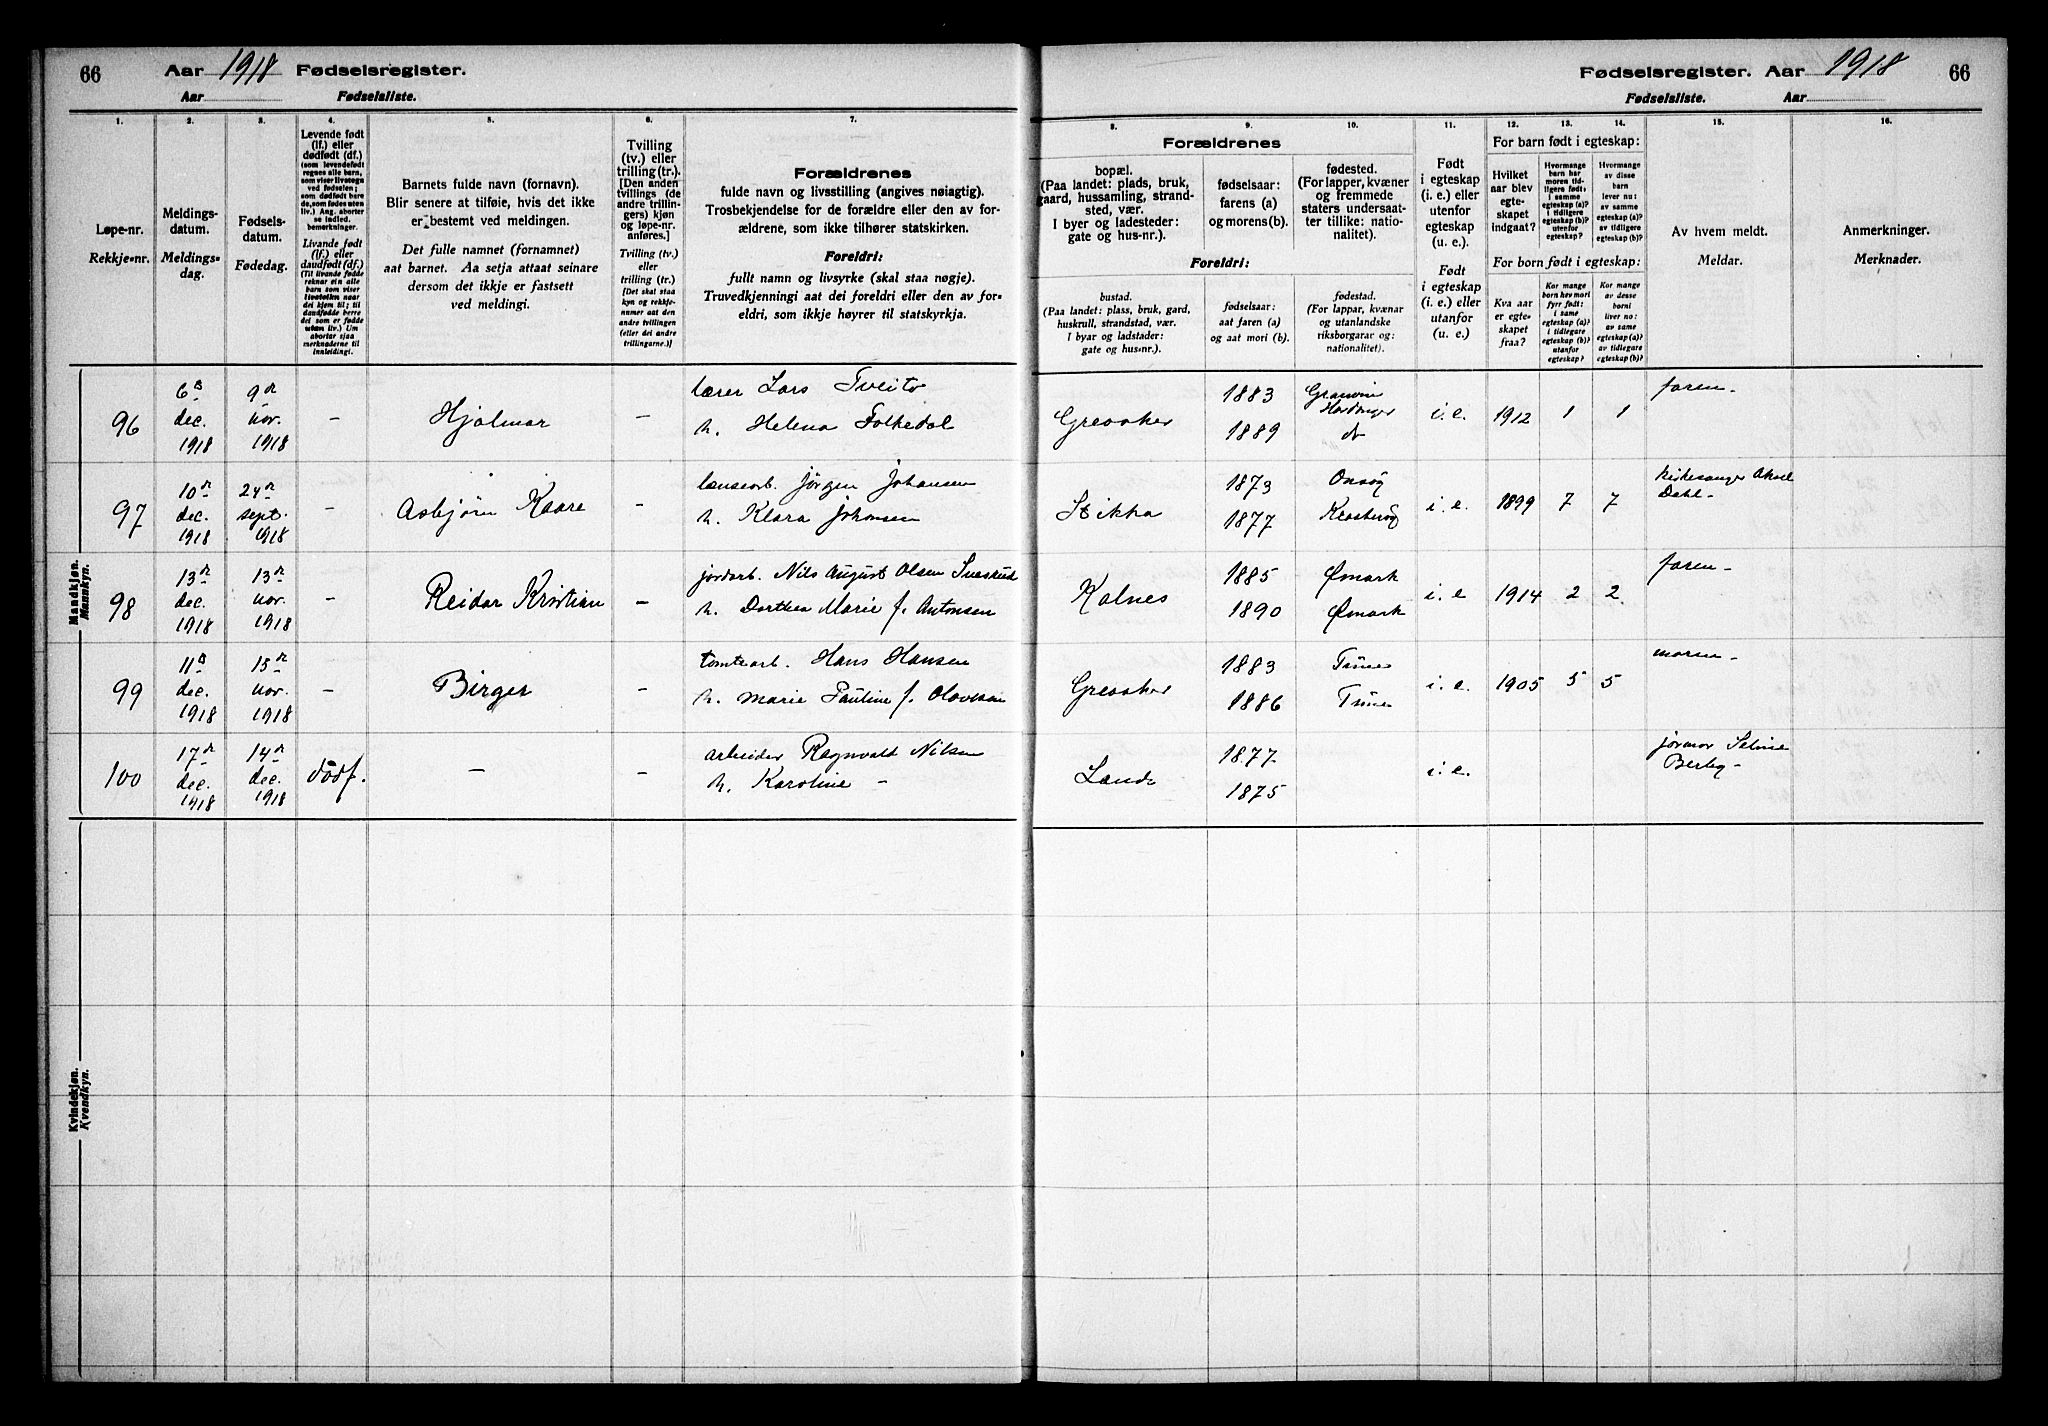 66
Aar 1918 Fødselsregister.
Aar Fødselsliste.
1.
Løpe-nr.
Rekkje-nr.
2.
Meldings-
datum.
Meldings-
dag.
3.
Fødsels-
datum.
Fødedag.
4.
Levende født
(lf.) eller
dødfødt (df.)
(som levendefødt
regnes alle barn,
som viser livstegn
ved fødselen;
som dødfødt bare
de, som fødes uten
liv.) Ang. aborter
se indled.
bemerkninger.
Livande født
(lf.) eller
daudfødt (df.)
5.
Barnets fulde navn (fornavn).
Blir senere at tilføie, hvis det ikke
er bestemt ved meldingen.
Det fulle namnet (fornamnet)
aat barnet. Aa setja attaat seinare
dersom det ikkje er fastsett
ved meldingi.
6.
Tvilling
(tv.) eller
trilling (tr.).
[Den anden
tvillings (de
andre trillin-
gers) kjøn
og løpe-nr.
anføres.]
Tvilling (tv.)
eller
trilling (tr.)
[Det skal staa
kyn og rekkje-
numer aat den
andre tvillingen
(eller dei andre
trillingarne.)]
7.
Forældrenes
fulde navn og livsstilling (angives nøiagtig).
Trosbekjendelse for de forældre eller den av for-
ældrene, som ikke tilhører statskirken.
Foreldri:
fullt namn og livsyrke (skal staa nøgje).
Truvedkjenningi aat dei foreldri eller den av for-
eldri, som ikkje høyrer til statskyrkja.
Mandkjøn.
Mannkyn.
96 6 dec. 1918 9 nov. 1918 – Hjalmar – lærer Lars Tveito
h. Helena Folkedal
97 10 dec. 1918 24 sept. 1918 – Asbjørn Kaare – lænsearb. Jørgen Johansen
h. Klara Johansen
98 13 dec. 1918 13 nov. 1918 – Reidar Kristian – jordarb. Nils August Olsen
h. Dorthea Marie f. Antonsen
99 11 dec. 1918 15 nov. 1918 – Birger – tomtearb. Hans Hansen
h. Marie Pauline f. Olavesen
100 17 dec. 1918 14 dec. 1918 dödf. – – arbeider Ragnvald Nilsen
h. Karoline –
Kvindekjøn.
Kvendkyn.
Fødselsregister. Aar 1918 66
Fødselsliste. Aar
8.
Forældrenes
bopæl.
(Paa landet: plads, bruk,
gaard, hussamling, strand-
sted, vær.
I byer og ladesteder:
gate og hus-nr.).
9.
fødselsaar:
farens (a)
og morens (b).
10.
fødested.
(For lapper, kvæner
og fremmede
staters undersaat-
ter tillike: natio-
nalitet).
Foreldri:
bustad.
(Paa landet: plass, bruk, gard,
huskrull, strandstad, vær.
I byar og ladstader:
gate og hus-nr.).
fødselsaar:
aat faren (a)
og aat mori (b).
fødestad.
(For lappar, kvænar
og utanlandske
riksborgarar og:
nationalitet).
11.
Født
i egteskap
(i. e.) eller
utenfor
egteskap
(u. e.).
Født
i egteskap
(i. e.) eller
utanfor
(u. e.).
12. 13. 14.
For barn født i egteskap:
Hvilket
aar blev
egte-
skapet
indgaat?
Hvormange
barn har
moren tid-
ligere født,
i samme
egteskap (a)?
i tidligere
egteskap (b)?
utenfor
egteskap?
Hvormange
av disse
barn
lever nu:
av samme
egteskap (a)?
av tidligere
egteskap (b)?
For born født i egteskap:
Kva aar
er egte-
skapet
fraa?
Kor mange
born hev mori
fyrr født:
i same
egteskap (a)?
i tidlegare
egteskap (b)?
utanfor
egteskap?
Kor mange
av desse
borni
liver no:
av same
egteskap (a)?
av tidlegare
egteskap (b)?
15.
Av hvem meldt.
Meldar.
16.
Anmerkninger.
Merknader.
Greaaker 1883 Granvin Hardanger i. e. 1912 1 1 faren –
1889
Stikka 1873 Onsøy i. e. 1899 7 7 kirkesanger Aksel
1877 Dahl –
Kalnes 1885 Ømark i. e 1914 2 2 faren –
1890 Ømark
Greaaker 1883 Tune i. e. 1905 5 5 moren –
1886 Tune
Lande 1877 i. e. jormor
1875